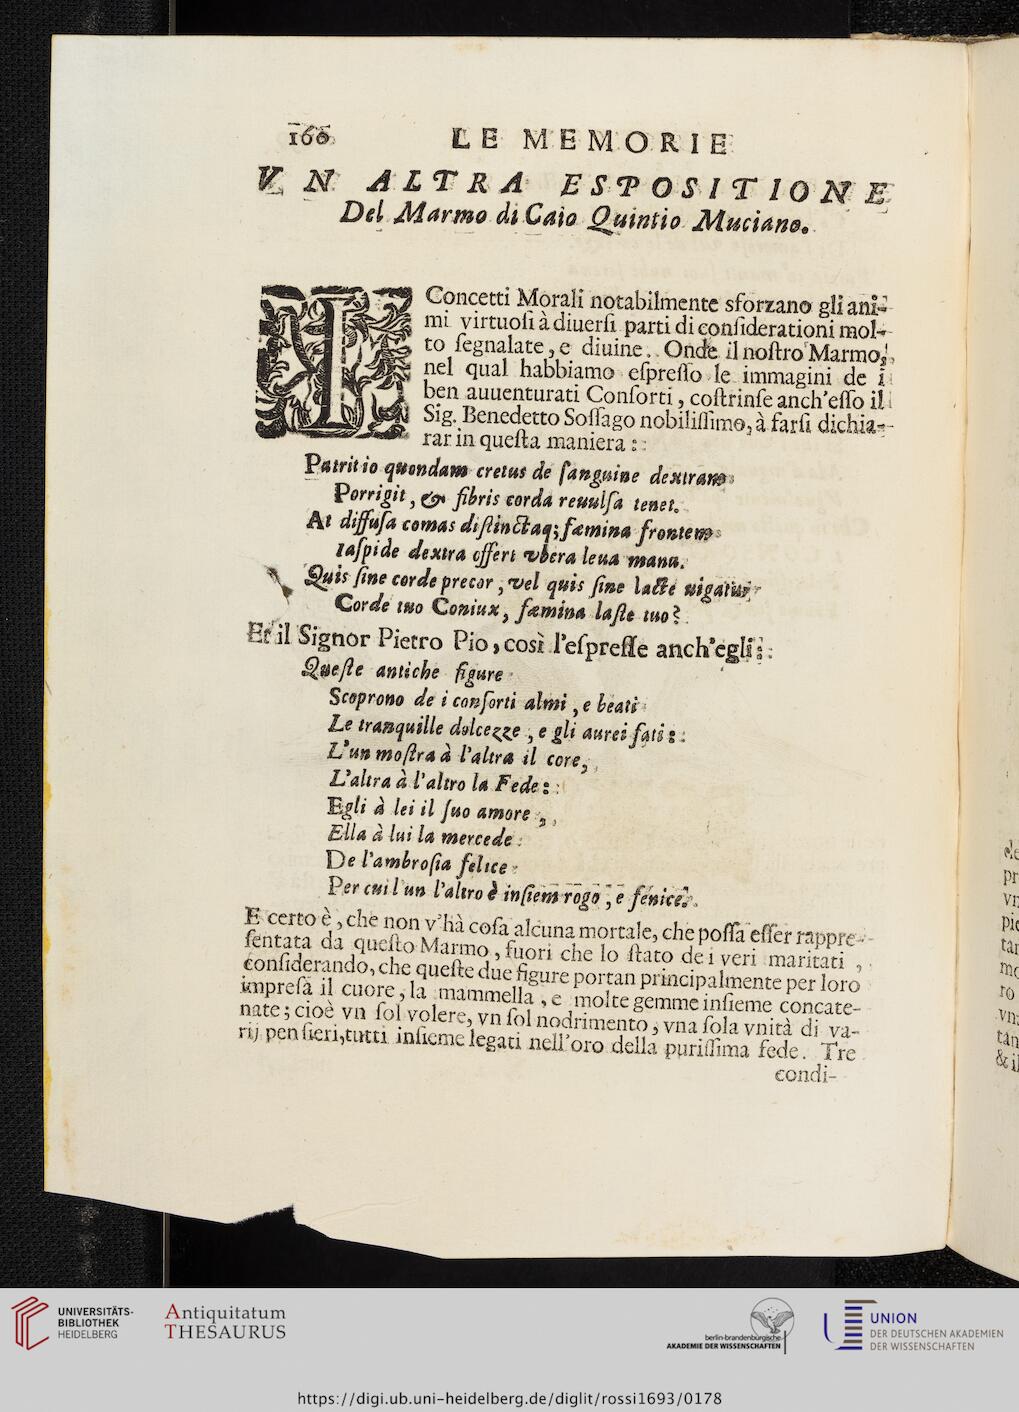 160 LE MEMORIE
VN ALTRA ESPOSITIONE
Del Marmo di Caio Quintio Muciano.
I Concetti Morali notabilmente sforzano gli ani-
mi virtuoſi à diuerſi parti di conſiderationi mol-
to ſegnalate, e diuine. Onde il noſtro Marmo,
nel qual habbiamo eſpreſſo le immagini de i
ben auuenturati Conſorti, coſtrinſe anch'eſſo il
Sig. Benedetto Soſſago nobiliſſimo, à farſi dichia-
rar in queſta maniera:
Patritio quondam cretus de ſanguine dextram
Porrigit, & fibris corda reuulſa tenet.
At diffuſa comas diſtinctaq; fæmina frontem
Iaſpide dextra offert vbera leua manu.
Quis ſine corde precor, vel quis ſine lacte uigatur
Corde tuo Coniux, fæmina laſte tuo?
Et il Signor Pietro Pio, così l'eſpreſſe anch'egli:
Queſte antiche figure
Scoprono de i conſorti almi, e beati
Le tranquille dolcezze, e gli aurei fati:
L'un moſtra à l'altra il core,
L'altra à l'altro la Fede:
Egli à lei il ſuo amore,
Ella à lui la mercede
De l'ambroſia felice
Per cui l'un l'altro è inſiem rogo, e fenice.
E certo è, che non v'hà coſa alcuna mortale, che poſſa eſſer rappre-
ſentata da queſto Marmo, fuori che lo ſtato de i veri maritati,
conſiderando, che queſte due figure portan principalmente per loro
impreſa il cuore, la mammella, e molte gemme inſieme concate-
nate; cioè vn ſol volere, vn ſol nodrimento, vna ſola vnità di va-
rij penſieri, tutti inſieme legati nell'oro della puriſſima fede. Tre
condi-
UNIVERSITÄTS-
BIBLIOTHEK
HEIDELBERG
Antiquitatum
THESAURUS
berlin-brandenburgische
AKADEMIE DER WISSENSCHAFTEN
UNION
DER DEUTSCHEN AKADEMIEN
DER WISSENSCHAFTEN
https://digi.ub.uni-heidelberg.de/diglit/rossi1693/0178